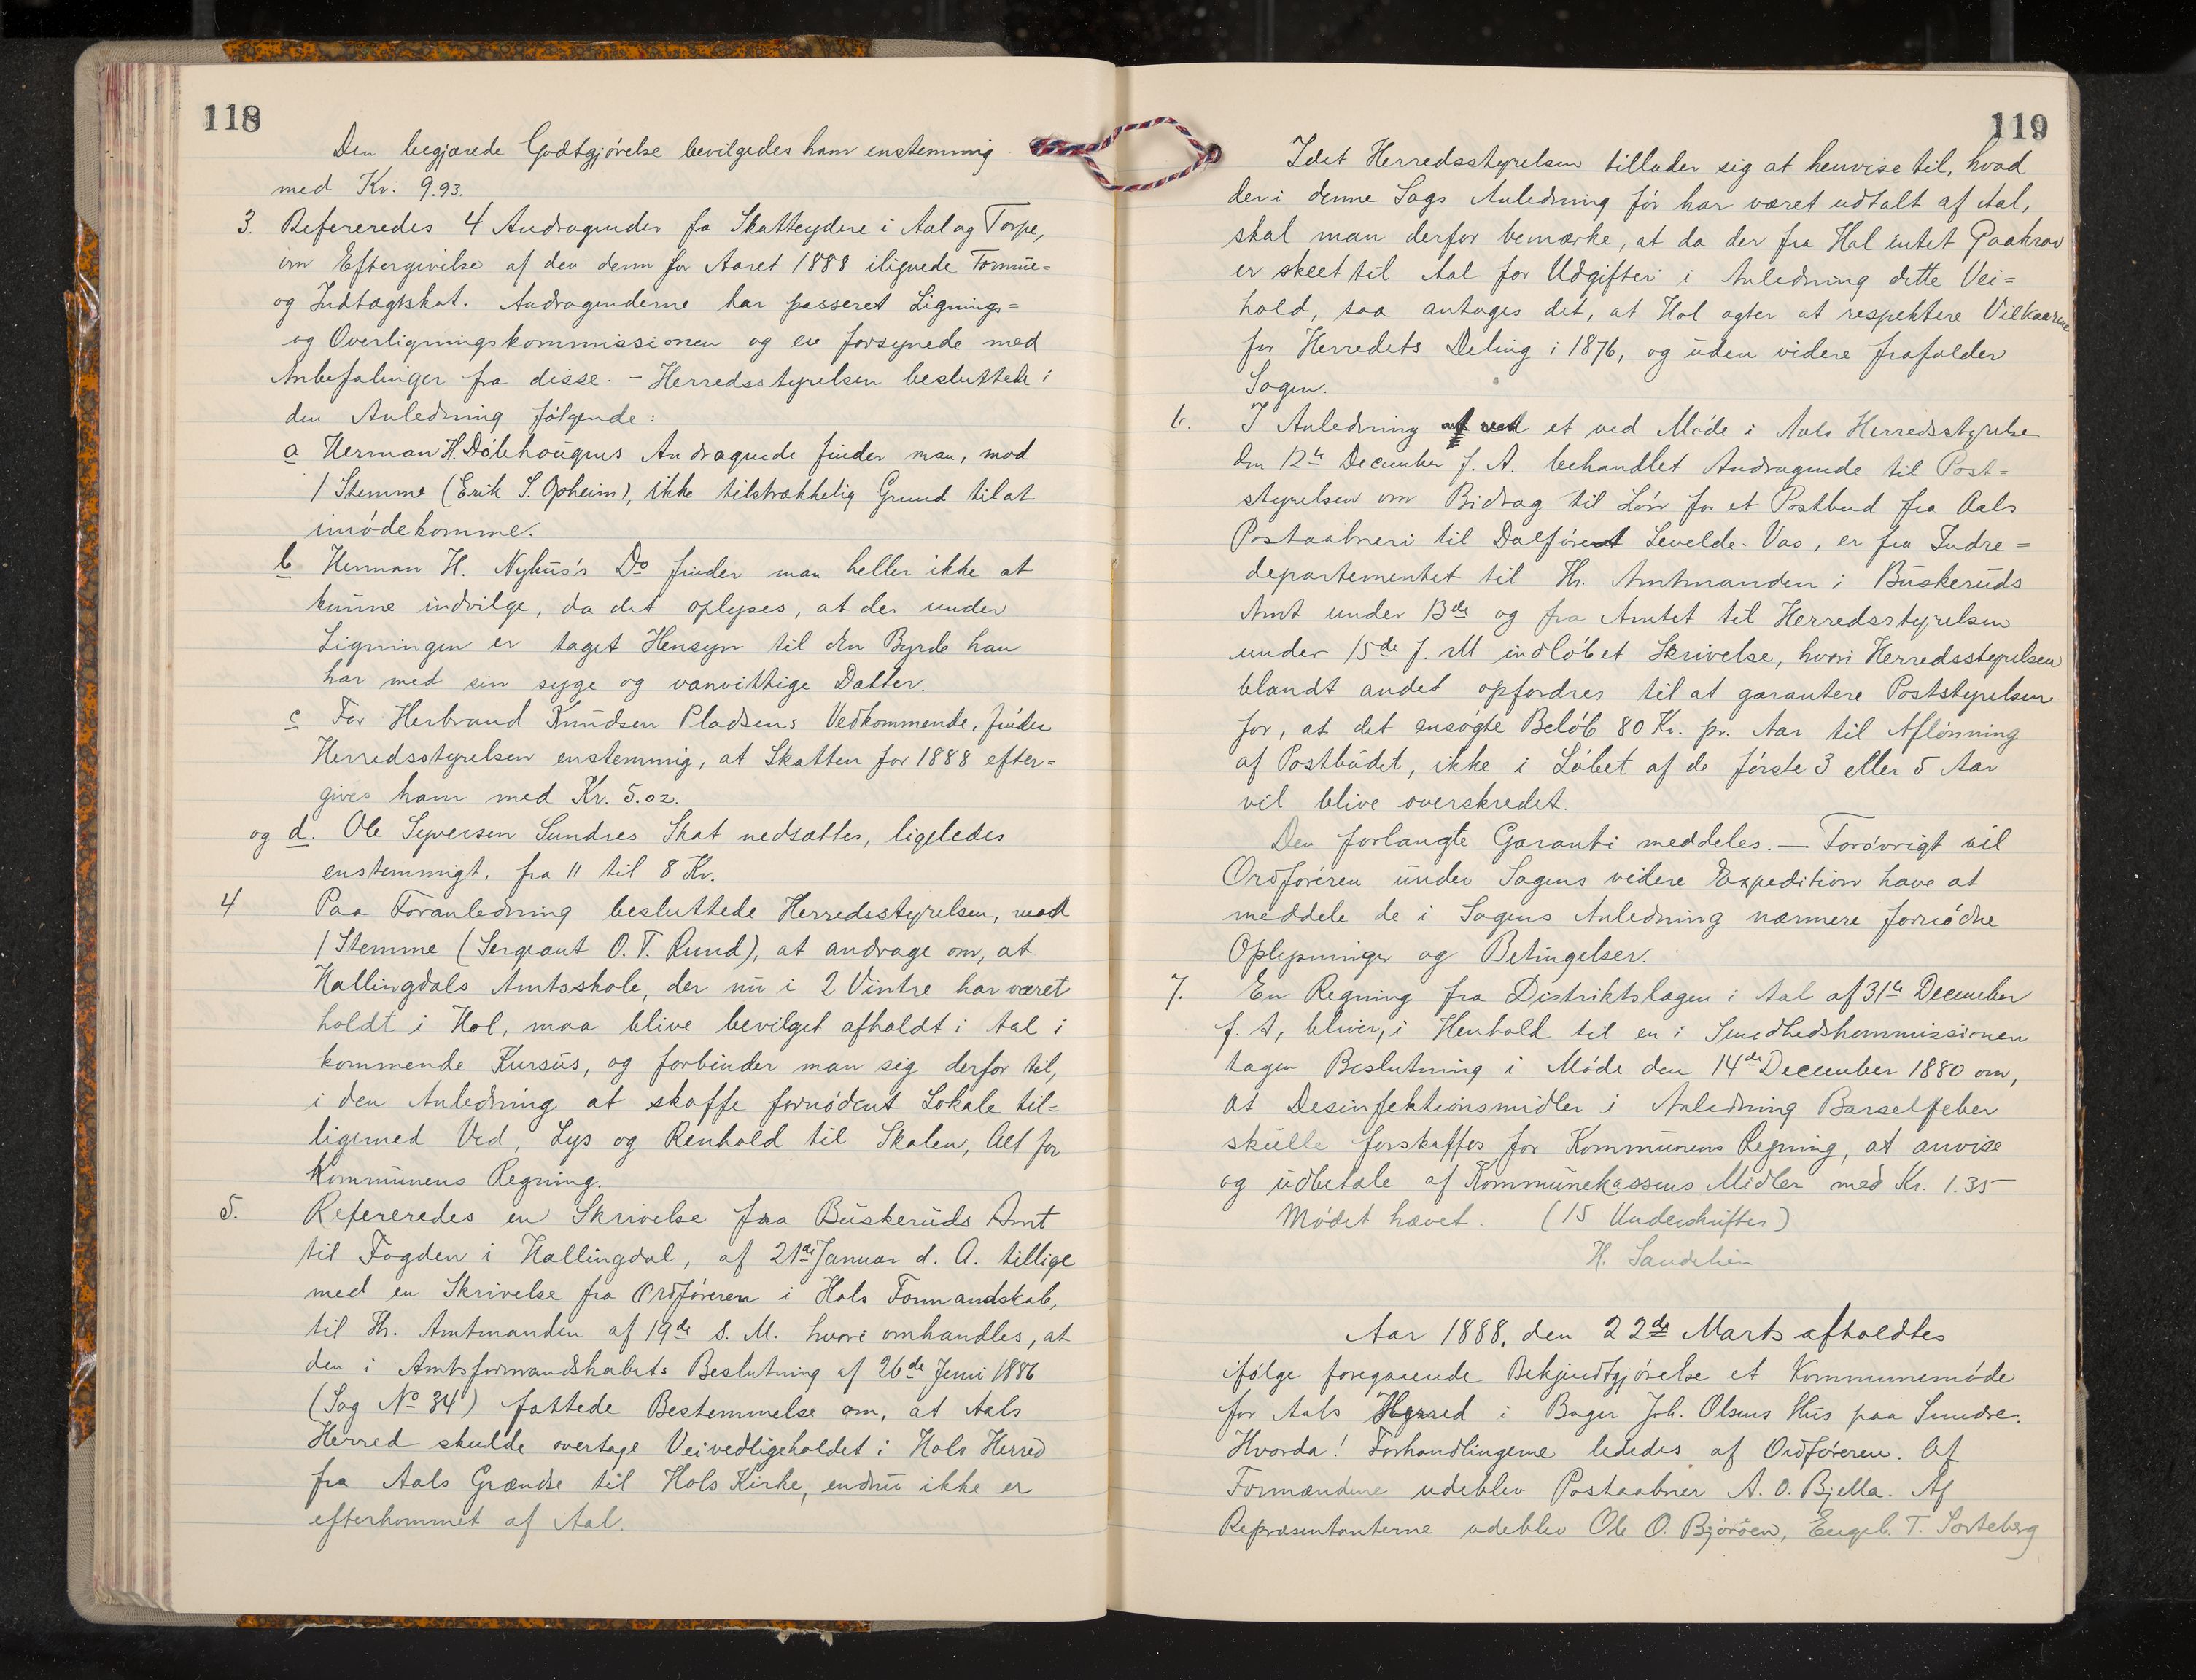 118
Den begjærede Godtgjørelse bevilgedes ham enstemmig
med Kr. 9.93.
3. Refereredes 4 Andragender fa Skatteydere i Aal og Torpe,
om Eftergivelse af den dem for Aaret 1888 ilignede Formue=
og Indtægtskat. Andragenderne har passeret Lignings=
og Overligningskommissionen og er forsynede med
Anbefalinger fra disse. - Herredsstyrelsen besluttede i
den Anledning følgende:
a Herman H. Dølehougens Andragende finder man, mod
1 Stemme (Erik S. Opheim), ikke tilstrækkelig Grund til at
imødekomme.
b Herman H. Nyhus's Do finder man heller ikke at
kunne indvilge, da det oplyses, at der under
Ligningen er taget Hensyn til den Byrde han
har med sin syge og vanvittige Datter.
c For Herbrand Knudsen Pladsens Vedkommende, finder
Herredsstyrelsen enstemmig, at Skatten for 1888 efter=
gives ham med Kr. 5.02.
og d. Ole Syversen Sundres Skat nedsættes, ligeledes
enstemmigt, fra 11 til 8 Kr.
4 Paa Foranledning besluttede Herredsstyrelsen, mod
1 Stemme (Sergeant O. T. Rund), at andrage om, at
Hallingdals Amtsskole, der nu i 2 Vintre har været
holdt i Hol, maa blive bevilget afholdt i Aal i
kommende Kursus, og forbinder man sig derfor til,
i den Anledning at skaffe fornødent Lokale til=
ligemed Ved, Lys og Renhold til Skolen, Alt for
Kommunens Regning.
5. Refereredes en Skrivelse fra Buskeruds Amt
til Fogden i Hallingdal, af 21de Januar d. A. tillige
med en Skrivelse fra Ordføreren i Hols Formandskab,
til Hr. Amtmanden af 19de s. M. hvori omhandles, at
den i Amtsformandskabets Beslutning af 26de Juni 1886
(Sag No 34) fattede Bestemmelse om, at Aals
Herred skulde overtage Veivedligeholdet i Hols Herred
fra Aals Grændse til Hols Kirke, endnu ikke er
efterkommet af Aal.
119
Idet Herredsstyrelsen tillader sig at henvise til, hvad
der i denne Sags Anledning før har været udtalt af Aal,
skal man derfor bemærke, at da der fra Hol intet Paakrav
er skeet til Aal for Udgifter i Anledning dette Vei=
hold, saa antages det, at Hol agter at respektere Vilkaarene
for Herredets Deling i 1876, og uden videre frafalder
Sagen.
6. I Anledning af et ved Møde i Aals Herredsstyrelse
den 12te December f. A. behandlet Andragende til Post=
styrelsen om Bidrag til Løn for et Postbud fra Aals
Postaabneri til Dalføret Levelde-Vas, er fra Indre=
departementet til Hr. Amtmanden i Buskeruds
Amt under 13de og fra Amtet til Herredsstyrelsen
under 15de f. M indløbet Skrivelse, hvori Herredsstyrelsen
blandt andet opfordres til at garantere Poststyrelsen
for, at det ansøgte Beløb 80 Kr. pr. Aar til Aflønning
af Postbudet, ikke i Løbet af de første 3 eller 5 Aar
vil blive overskredet.
Den forlangte Garanti meddeles. — Forøvrigt vil
Ordføreren under Sagens videre Expedition have at
meddele de i Sagens Anledning nærmere fornødne
Oplysninger og Betingelser.
7. En Regning fra Distriktslægen i Aal af 31te December
f. A, bliver, i Henhold til en i Sundhedskommissionen
tagen Beslutning i Møde den 14de December 1880 om,
at Desinfektionsmidler i Anledning Barselfeber
skulle forskaffes for Kommunens Regning, at anvise
og udbetale af Kommunekassens Midler med Kr. 1.35
Mødet hævet. (15 Underskrifter)
H. Sandelien
Aar 1888, den 22de Marts afholdtes
ifølge foregaaende Bekjendtgjørelse et Kommunemøde
for Aals Herred i Bager Joh. Olsens Hus paa Sundre.
Hvorda! Forhandlingerne lededes af Ordføreren. Af
Formændene udeblev Postaabner A. O. Bjella. Af
Repræsentanterne udeblev Ole O. Bjøröen, Engeb. T. Sorteberg